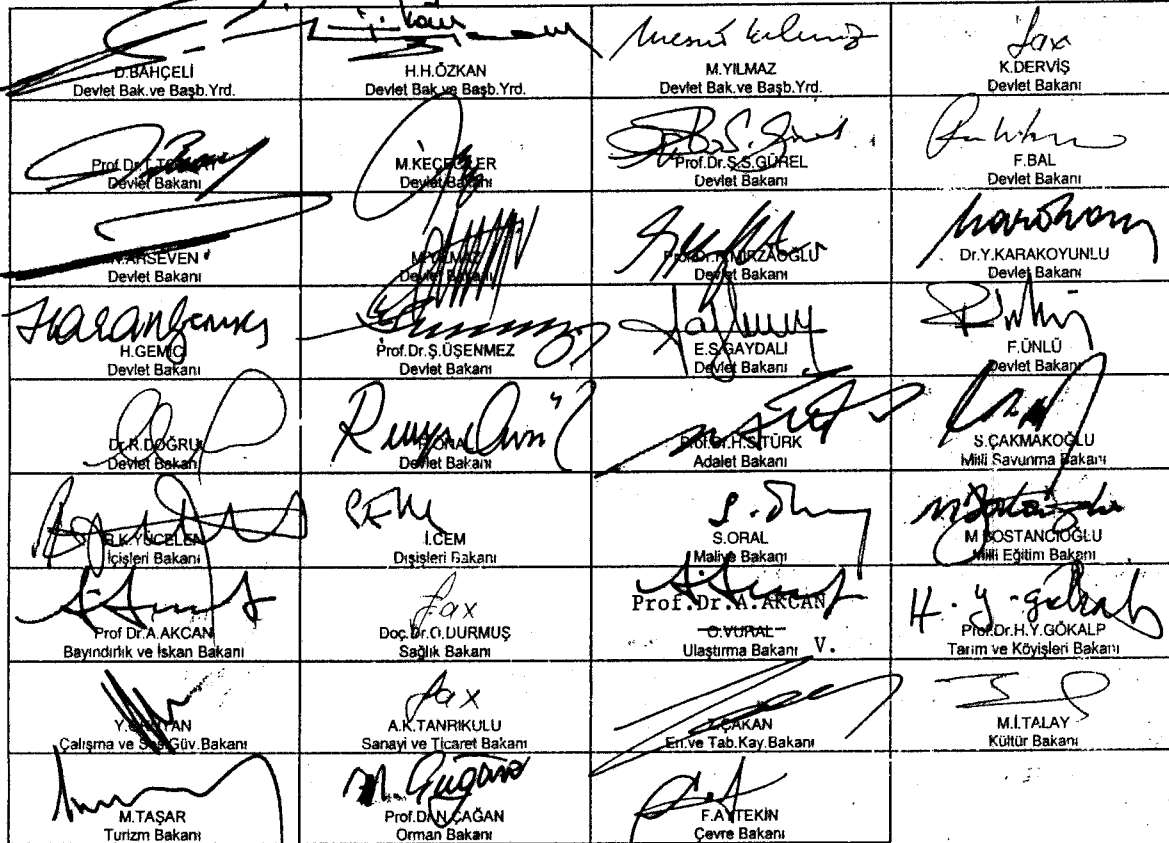 D.BAHÇELİ
Devlet Bak.ve Başb.Yrd.
H.H.ÖZKAN
Devlet Bak.ve Başb.Yrd.
Mesut Yılmaz
M.YILMAZ
Devlet Bak.ve Başb.Yrd.
fax
K.DERVİŞ
Devlet Bakanı
Prof.Dr.T.
Devlet Bakanı
M.KEÇECİLER
Devlet Bakanı
Prof.Dr.Ş.S.GÜREL
Devlet Bakanı
F.BAL
Devlet Bakanı
N.ARSEVEN
Devlet Bakanı
M.YILMAZ
Devlet Bakanı
Prof.Dr.R.MİRZAOĞLU
Devlet Bakanı
Dr.Y.KARAKOYUNLU
Devlet Bakanı
H.GEMİCİ
Devlet Bakanı
Prof.Dr.Ş.ÜŞENMEZ
Devlet Bakanı
E.S.GAYDALI
Devlet Bakanı
F.ÜNLÜ
Devlet Bakanı
Dr.R.DOĞRU
Devlet Bakanı
R.ÖNAL
Devlet Bakanı
Prof.Dr.H.S.TÜRK
Adalet Bakanı
S.ÇAKMAKOĞLU
Milli Savunma Bakanı
R.K.YÜCELEN
İçişleri Bakanı
İ.CEM
Dışişleri Bakanı
S.ORAL
Maliye Bakanı
M.BOSTANCIOĞLU
Milli Eğitim Bakanı
Prof.Dr.A.AKCAN
Bayındırlık ve İskan Bakanı
fax
Doç.Dr.O.DURMUŞ
Sağlık Bakanı
Prof.Dr.A.AKCAN
O.VURAL
Ulaştırma Bakanı V.
Prof.Dr.H.Y.GÖKALP
Tarım ve Köyişleri Bakanı
Y.
Çalışma ve Sos.Güv.Bakanı
fax
A.K.TANRIKULU
Sanayi ve Ticaret Bakanı
Z.ÇAKAN
En.ve Tab.Kay.Bakanı
M.İ.TALAY
Kültür Bakanı
M.TAŞAR
Turizm Bakanı
Prof.Dr.N.ÇAĞAN
Orman Bakanı
F.AYTEKİN
Çevre Bakanı